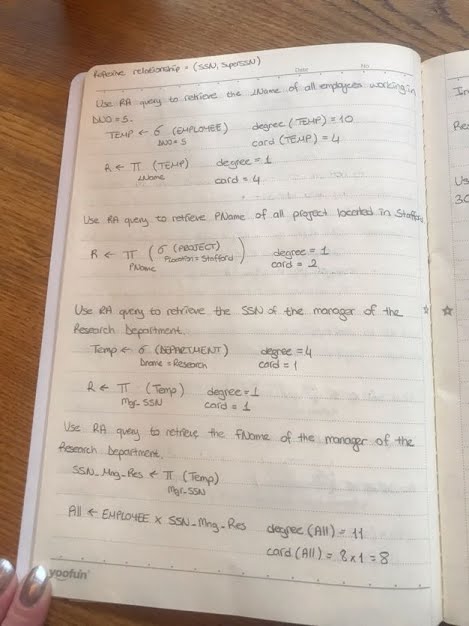 Reflexive relationship = (SSN, SuperSSN)
Date No
Use RA query to retrieve the LName of all employees working in
DNO = 5.
TEMP ← σ (EMPLOYEE) degree (TEMP) = 10
DNO = 5 card (TEMP) = 4
R ← π (TEMP) degree = 1
LName card = 4
Use RA query to retrieve PName of all project located in Stafford
R ← π ( σ (PROJECT) ) degree = 1
PName Plocation = Stafford card = 2
Use RA query to retrieve the SSN of the manager of the
Research Department.
Temp ← σ (DEPARTMENT) degree = 4
Dname = Research card = 1
R ← π (Temp) degree = 1
Mgr-SSN card = 1
Use RA query to retrieve the FName of the manager of the
Research Department.
SSN_Mng_Res ← π (Temp)
Mgr-SSN
All ← EMPLOYEE × SSN_Mng_Res degree (All) = 11
card (All) = 8 × 1 = 8
yoofun
In
Re
Us
30